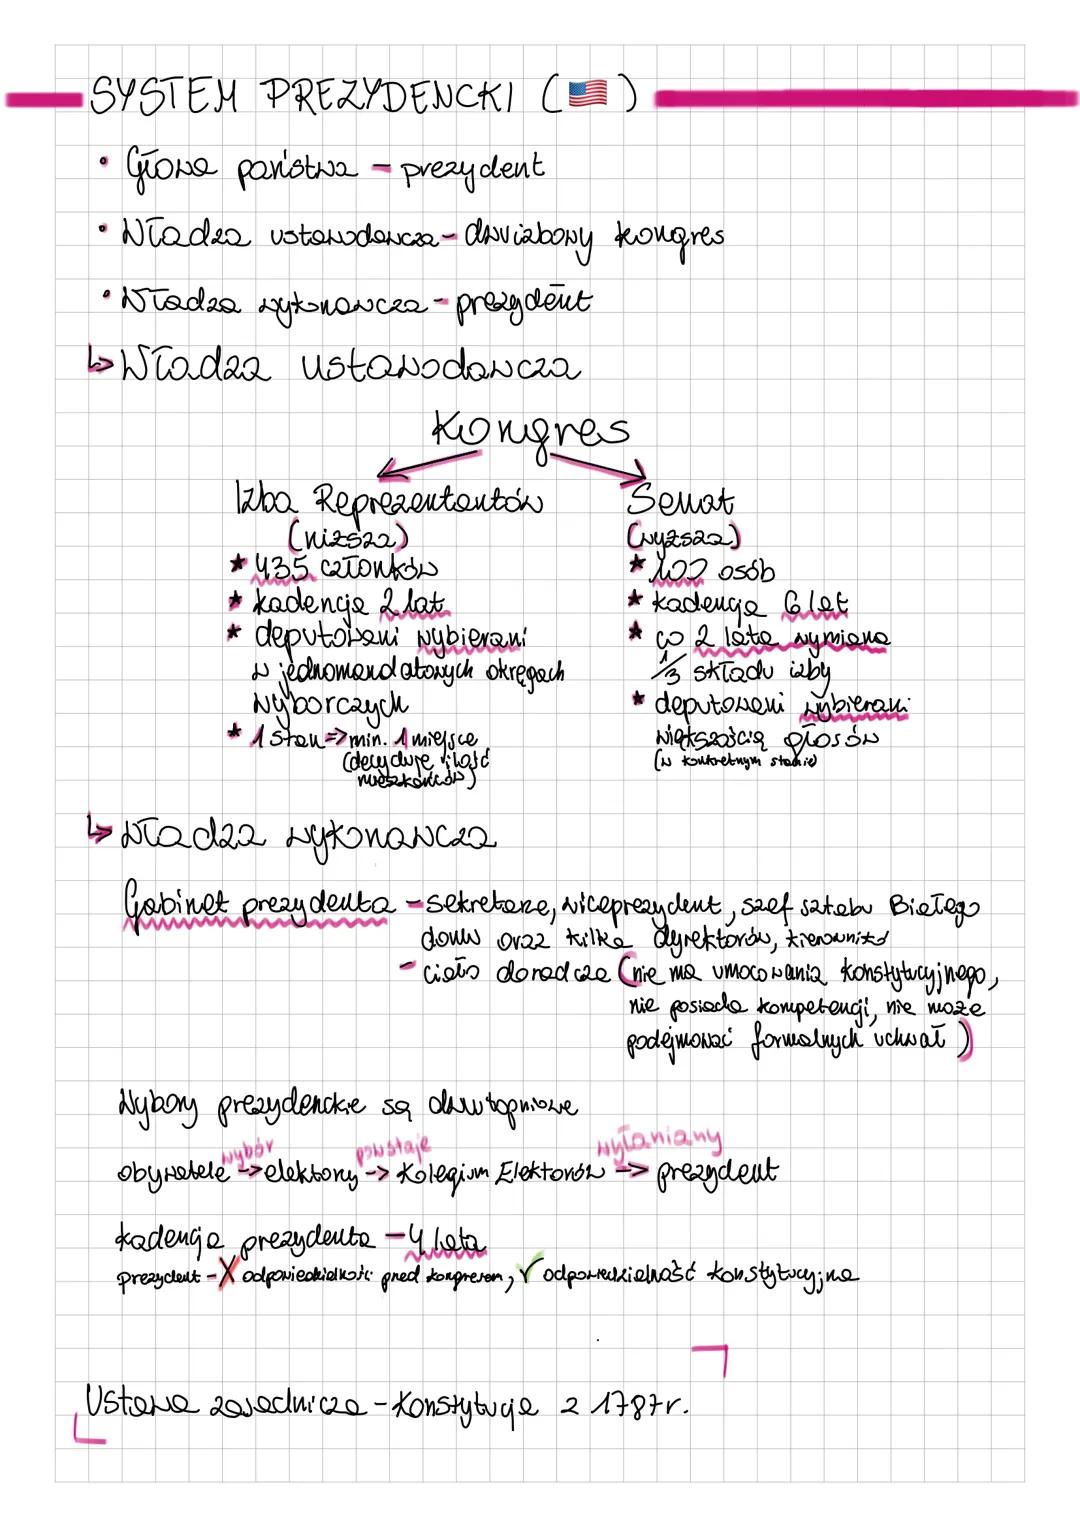 SYSTEM PREZYDENCKI (🇺🇸)
• Głowa państwa – prezydent
• Władza ustawodawcza – dwuizbowy kongres
• Władza wykonawcza – prezydent
↳ Władza ustawodawcza
Kongres
Izba Reprezentantów
(niższa)
* 435 członków
* kadencja 2 lat
* deputowani wybierani
w jednomandatowych okręgach
wyborczych
* 1 stan => min. 1 miejsce
(decyduje ilość
mieszkańców)
Senat
(wyższa)
* 100 osób
* kadencja 6 lat
* co 2 lata wymiana
1/3 składu izby
* deputowani wybierani
większością głosów
(w konkretnym stanie)
↳ Władza wykonawcza
Gabinet prezydenta – sekretarze, wiceprezydent, szef sztabu Białego
domu oraz kilka dyrektorów, kierownitō
– ciało doradcze (nie ma umocowania konstytucyjnego,
nie posiada kompetencji, nie może
podejmować formalnych uchwał)
Wybory prezydenckie są dwutopniowe
wybór powstaje wyłaniany
obywatele -> elektorzy -> Kolegium Elektorów -> prezydent
kadencja prezydenta – 4 lata
prezydent – X odpowiedzialność przed kongresem, ✓ odpowiedzialność konstytucyjna
Ustawa zasadnicza – Konstytucja z 1787r.